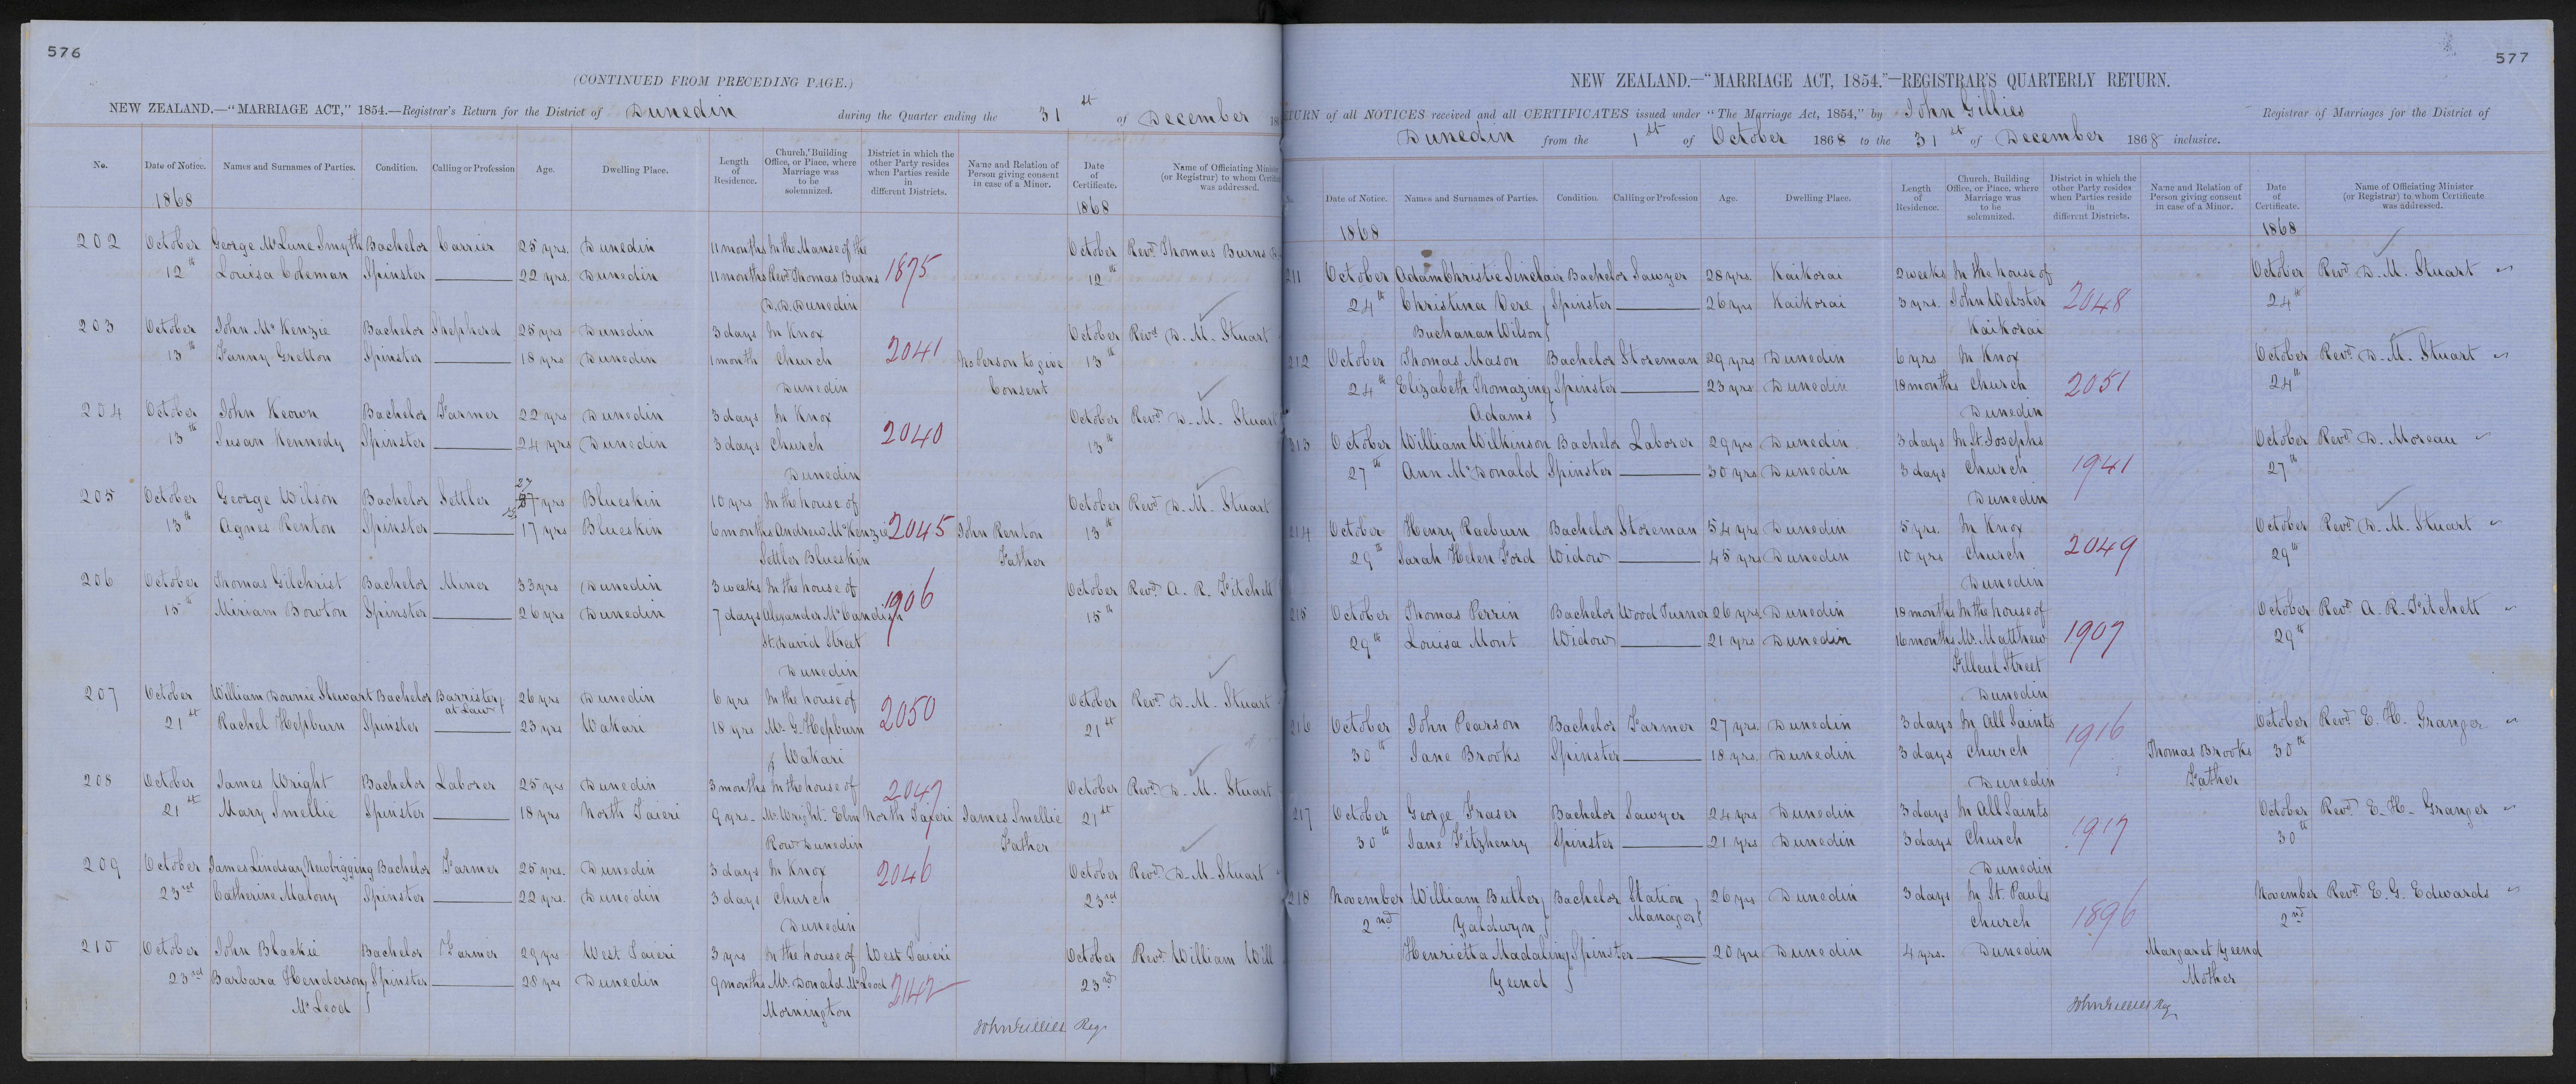 576
(CONTINUED FROM PRECEDING PAGE.)
NEW ZEALAND.—"MARRIAGE ACT," 1854.—Registrar's Return for the District of Dunedin during the Quarter ending the 31st of December 18
No. Date of Notice. Names and Surnames of Parties. Condition. Calling or Profession Age. Dwelling Place. Length of Residence. Church, Building Office, or Place, where Marriage was to be solemnized. District in which the other Party resides when Parties reside in different Districts. Name and Relation of Person giving consent in case of a Minor. Date of Certificate. Name of Officiating Minister (or Registrar) to whom Certificate was addressed.
1868 1868
202 October George McLune Smyth Bachelor Carrier 25 yrs. Dunedin 11 months In the Manse of the October Revd. Thomas Burns
12th Louisa Coleman Spinster 22 yrs. Dunedin 11 months Revd Thomas Burns 1875 12th
D.D. Dunedin
203 October John McKenzie Bachelor Shepherd 25 yrs Dunedin 3 days In Knox October Revd D. M. Stuart
13th Fanny Gretton Spinster 18 yrs Dunedin 1 month Church 2041 No Person to give 13th
Dunedin Consent
204 October John Keown Bachelor Farmer 22 yrs Dunedin 3 days In Knox October Revd. D. M. Stuart
13th Susan Kennedy Spinster 24 yrs Dunedin 3 days Church 2040 13th
Dunedin
205 October George Wilson Bachelor Settler 27 yrs Blueskin 10 yrs In the house of October Revd. D. M. Stuart
13th Agnes Renton Spinster 17 yrs Blueskin 6 months Andrew McKenzie 2045 John Renton 13th
Settler Blueskin Father
206 October Thomas Gilchrist Bachelor Miner 33 yrs Dunedin 3 weeks In the house of October Revd. A. R. Fitchett
15th Miriam Bowton Spinster 26 yrs Dunedin 7 days Alexander McCandish 1906 15th
St. David Street
Dunedin
207 October William Downie Stewart Bachelor Barrister at Law 26 yrs Dunedin 6 yrs In the house of October Revd. D. M. Stuart
21st Rachel Hepburn Spinster 23 yrs Wakari 18 yrs Mr. G. Hepburn 2050 21st
of Wakari
208 October James Wright Bachelor Laborer 25 yrs Dunedin 3 months In the house of 2047 October Revd. D. M. Stuart
21st Mary Smellie Spinster 18 yrs North Taieri 9 yrs. Mr. Wright. Elm North Taieri James Smellie 21st
Row Dunedin Father
209 October James Lindsay Newbigging Bachelor Farmer 25 yrs. Dunedin 3 days In Knox 2046 October Revd. D. M. Stuart
23rd Catherine Malony Spinster 22 yrs. Dunedin 3 days Church 23rd
Dunedin
210 October John Blackie Bachelor Farmer 29 yrs West Taieri 3 yrs In the house of West Taieri October Revd. William Will
23rd Barbara Henderson Spinster 28 yrs Dunedin 9 months Mr. Donald McLeod 2142 23rd
McLeod Mornington
John Gillies Regr
577
NEW ZEALAND.—"MARRIAGE ACT, 1854."—REGISTRAR'S QUARTERLY RETURN.
TURN of all NOTICES received and all CERTIFICATES issued under "The Marriage Act, 1854," by John Gillies Registrar of Marriages for the District of
Dunedin from the 1st of October 1868 to the 31st of December 1868 inclusive.
No. Date of Notice. Names and Surnames of Parties. Condition. Calling or Profession Age. Dwelling Place. Length of Residence. Church, Building Office, or Place, where Marriage was to be solemnized. District in which the other Party resides when Parties reside in different Districts. Name and Relation of Person giving consent in case of a Minor. Date of Certificate. Name of Officiating Minister (or Registrar) to whom Certificate was addressed.
1868 1868
211 October Adam Christie Sinclair Bachelor Sawyer 28 yrs. Kaikorai 2 weeks In the house of October Revd D. M. Stuart
24th Christina Vere Spinster 26 yrs Kaikorai 3 yrs. John Webster 2048 24th
Buchanan Wilson Kaikorai
212 October Thomas Mason Bachelor Storeman 29 yrs Dunedin 6 yrs In Knox October Revd. D. M. Stuart
24th Elizabeth Thomazing Spinster 23 yrs Dunedin 18 months Church 2051 24th
Adams Dunedin
213 October William Wilkinson Bachelor Laborer 29 yrs Dunedin 3 days In St Josephs October Revd D. Moreau
27th Ann McDonald Spinster 30 yrs Dunedin 3 days Church 1941 27th
Dunedin
214 October Henry Raeburn Bachelor Storeman 54 yrs Dunedin 5 yrs. In Knox October Revd D. M. Stuart
29th Sarah Helen Ford Widow 45 yrs Dunedin 10 yrs Church 2049 29th
Dunedin
215 October Thomas Perrin Bachelor Wood Turner 26 yrs. Dunedin 18 months In the house of October Revd A. R. Fitchett
29th Louisa Mont Widow 21 yrs Dunedin 16 months Mr. Matthew 1907 29th
Filleul Street
Dunedin
216 October John Pearson Bachelor Farmer 27 yrs. Dunedin 3 days In All Saints October Revd E. H. Granger
30th Jane Brooks Spinster 18 yrs. Dunedin 3 days Church 1916 Thomas Brooks 30th
Dunedin Father
217 October George Fraser Bachelor Sawyer 24 yrs Dunedin 3 days In All Saints October Revd. E. H. Granger
30th Jane Fitzhenry Spinster 21 yrs Dunedin 3 days Church 1917 30th
Dunedin
218 November William Butler Bachelor Station Manager 26 yrs Dunedin 3 days In St. Pauls November Revd E. G. Edwards
2nd Yaldwyn Church 1896 2nd
Henrietta Madaling Spinster 20 yrs Dunedin 4 yrs. Dunedin Margaret Yeend
Yeend Mother
John Gillies Regr